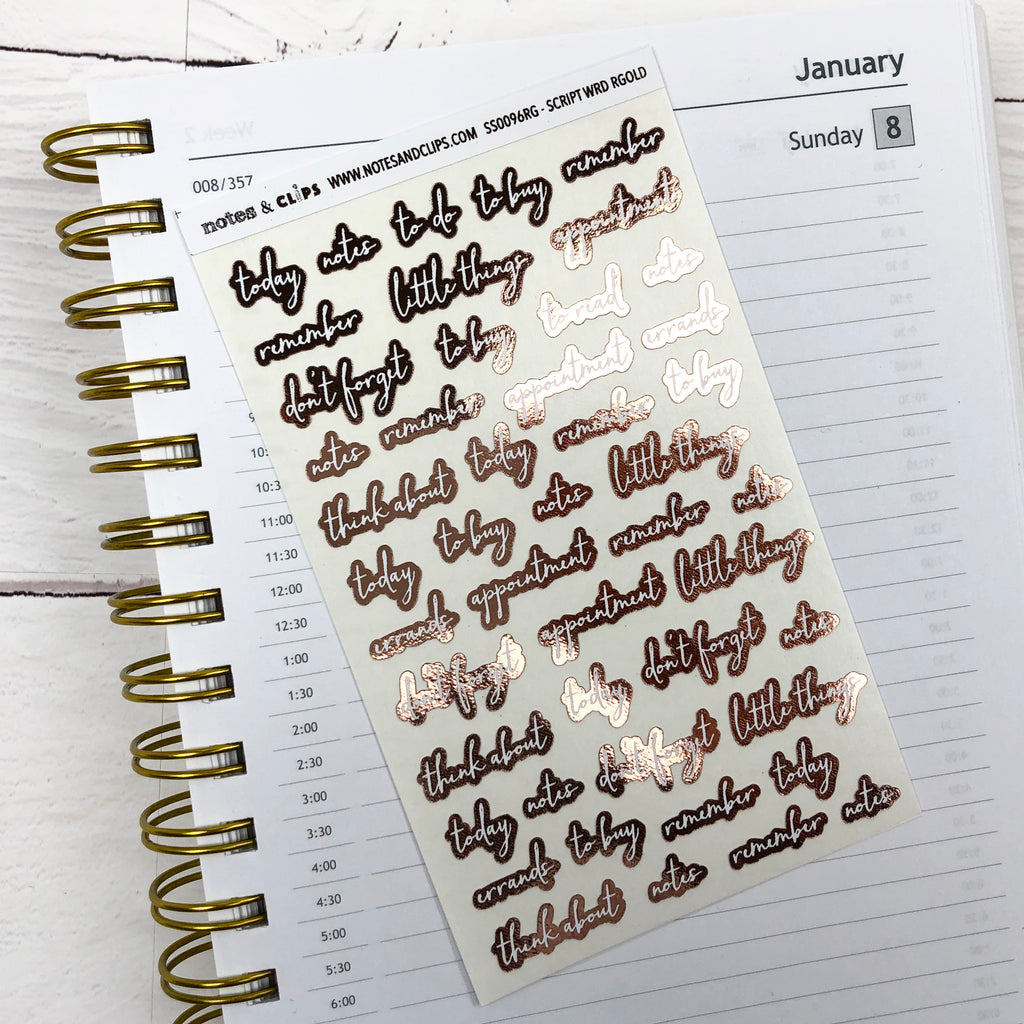 January
Sunday 8
008/357
notes & CLiPS WWW.NOTESANDCLIPS.COM SS0096RG - SCRIPT WRD RGOLD
today notes to do to buy remember
remember little things appointment
don't forget to buy to read notes
notes remember appointment errands
think about today remember to buy
today to buy notes little things
errands appointment remember notes
don't forget appointment little things
today don't forget notes
think about don't forget little things
today notes remember today
errands to buy remember notes
think about notes
11:00
11:30
12:00
12:30
1:00
1:30
2:00
2:30
3:00
3:30
4:00
4:30
5:00
5:30
6:00